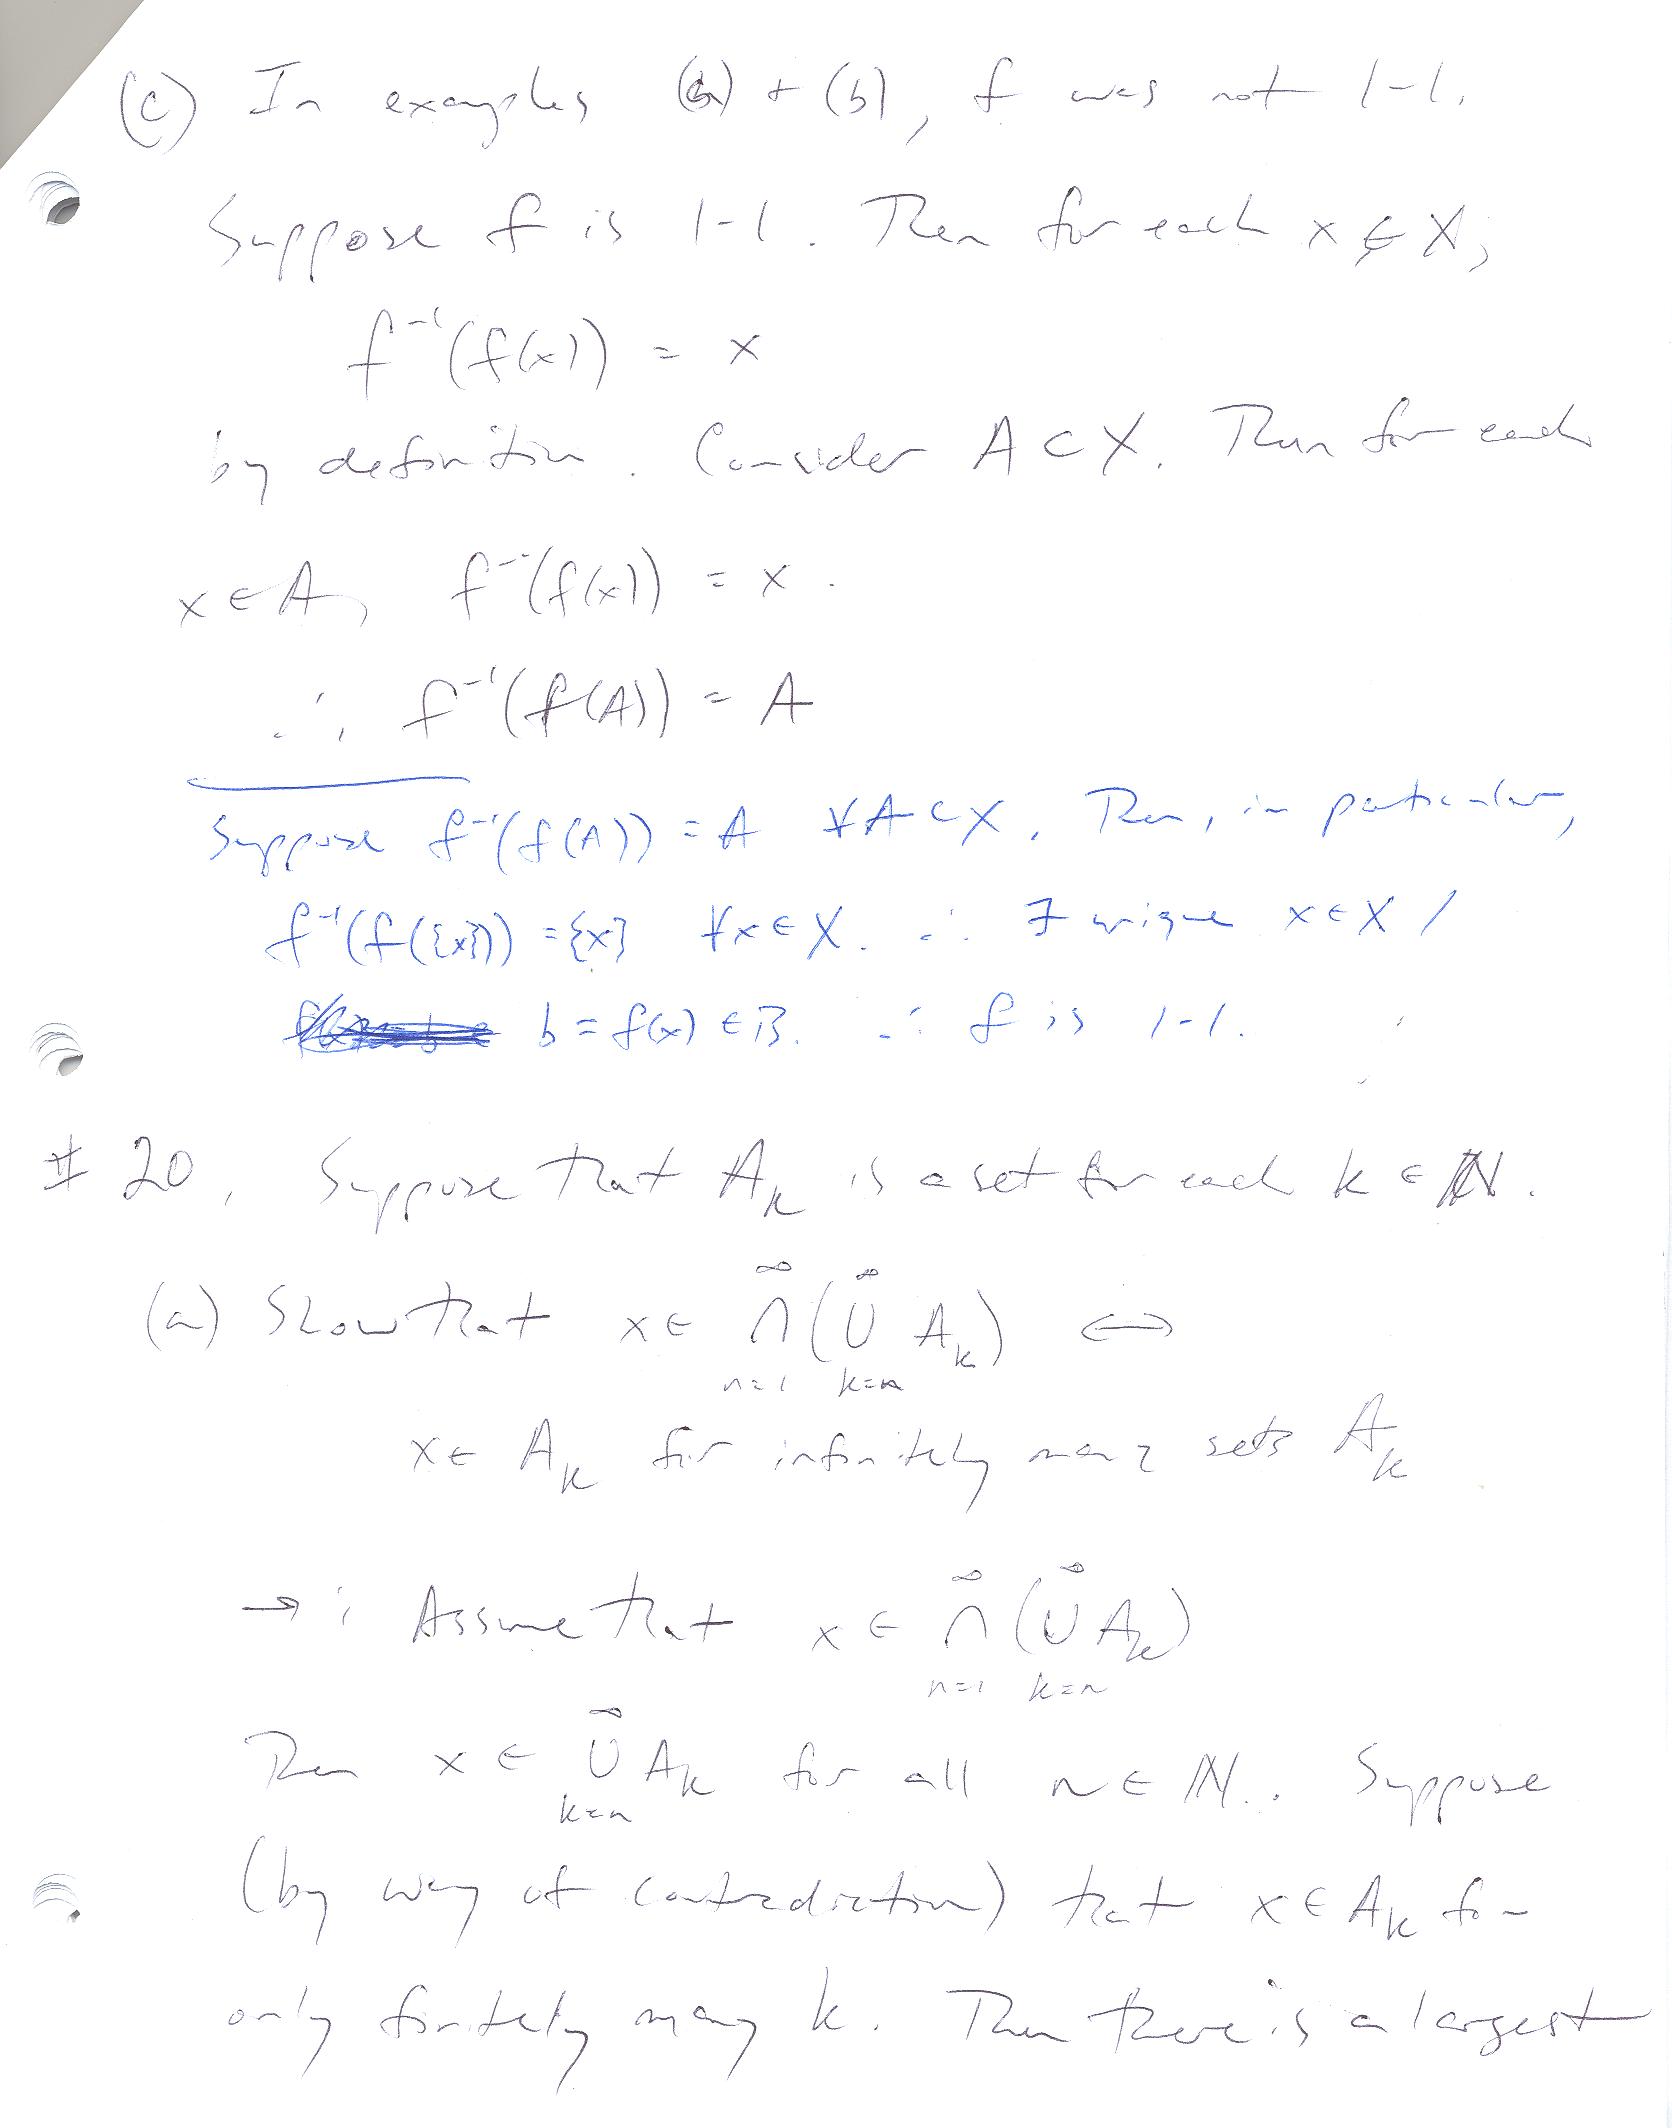 (c) In examples (a) + (b), f was not 1-1.
Suppose f is 1-1. Then for each x ∈ X,
f⁻¹(f(x)) = x
by definition. Consider A ⊂ X. Then for each
x ∈ A, f⁻¹(f(x)) = x.
∴ f⁻¹(f(A)) = A
Suppose f⁻¹(f(A)) = A ∀A ⊂ X. Then, in particular,
f⁻¹(f({x})) = {x} ∀x ∈ X. ∴ ∃ unique x ∈ X /
b = f(x) ∈ B. ∴ f is 1-1.
# 20. Suppose that Aₖ is a set for each k ∈ ℕ.
(a) Show that x ∈ ⋂_{n=1}^∞ (⋃_{k=n}^∞ Aₖ) ⟺
x ∈ Aₖ for infinitely many sets Aₖ
→: Assume that x ∈ ⋂_{n=1}^∞ (⋃_{k=n}^∞ Aₖ)
Then x ∈ ⋃_{k=n}^∞ Aₖ for all n ∈ ℕ. Suppose
(by way of contradiction) that x ∈ Aₖ for
only finitely many k. Then there is a largest